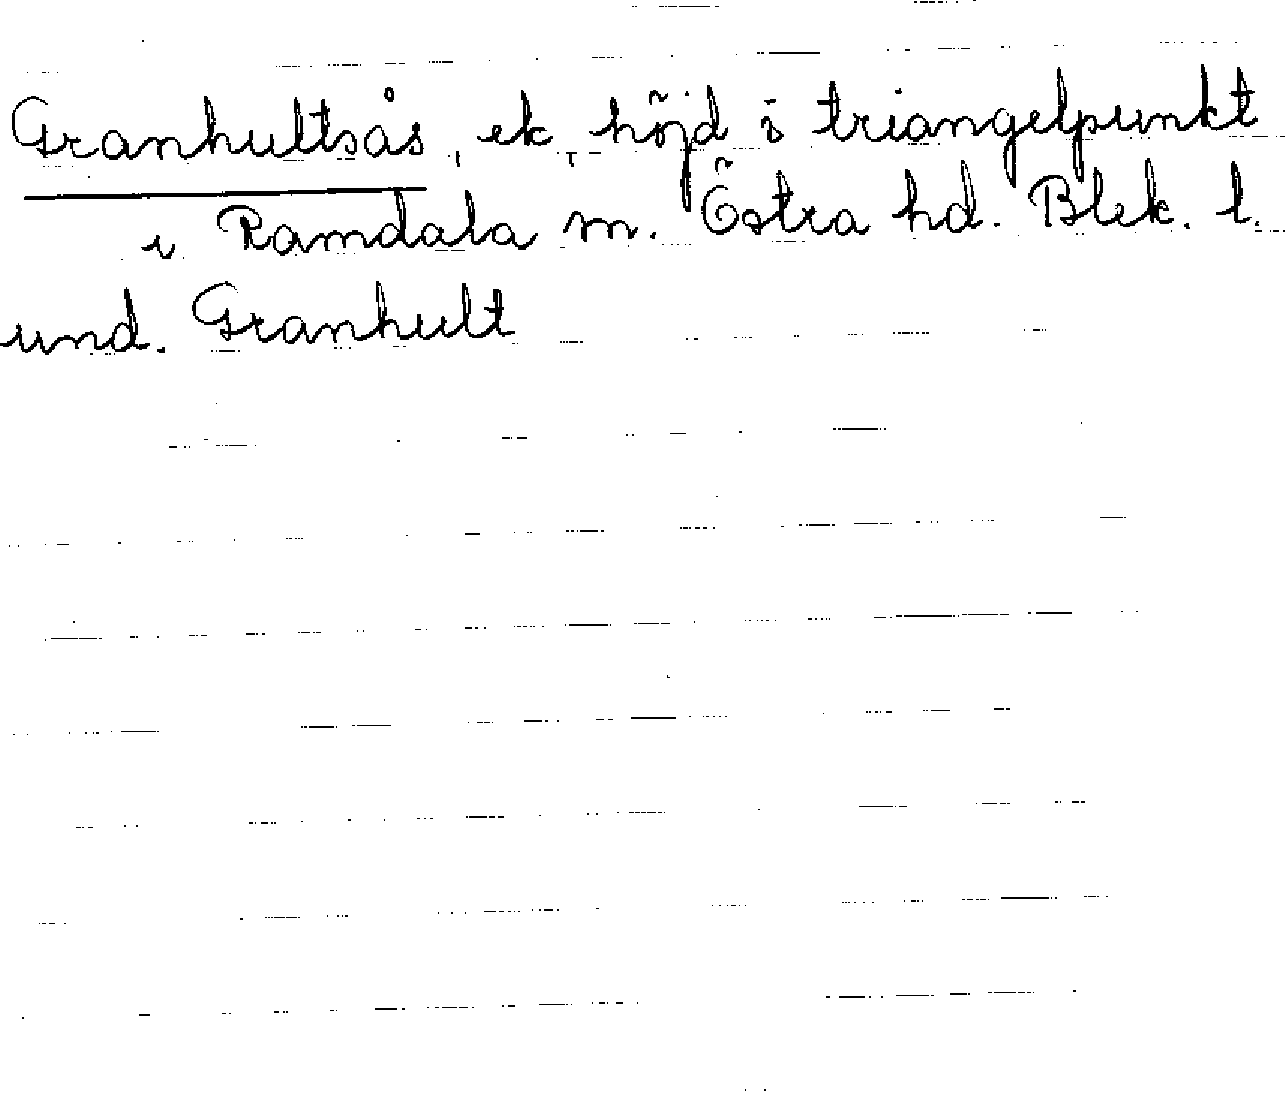 Granhultsås, ek, höjd i triangelpunkt
i Ramdala sn. Östra hd. Blek. l.
und. Granhult